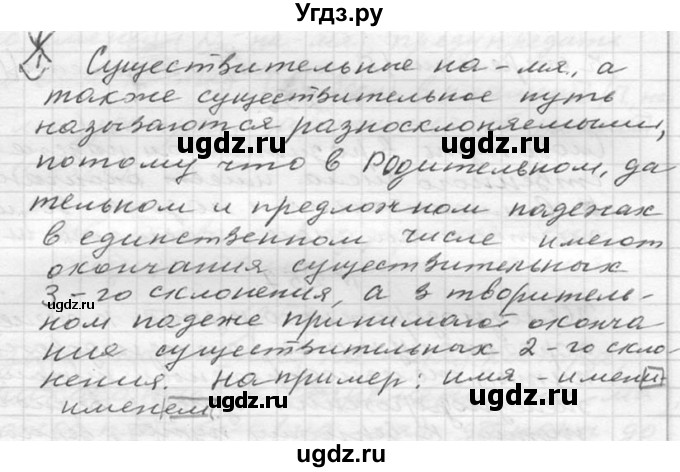 Угдз.ру
Существительные на -мя, а
также существительное путь
называются разносклоняемыми,
потому что в Родительном, да
тельном и предложном падежах
в единственном числе имеют
окончания существительных
3-го склонения, а в творитель-
ном падеже принимают оконча
ния существительных 2-го скло-
нения. Например: имя - имени
именем.
ugdz.ru ugdz.ru
ugdz.ru ugdz.ru
ugdz.ru ugdz.ru
ugdz.ru ugdz.ru
ugdz.ru